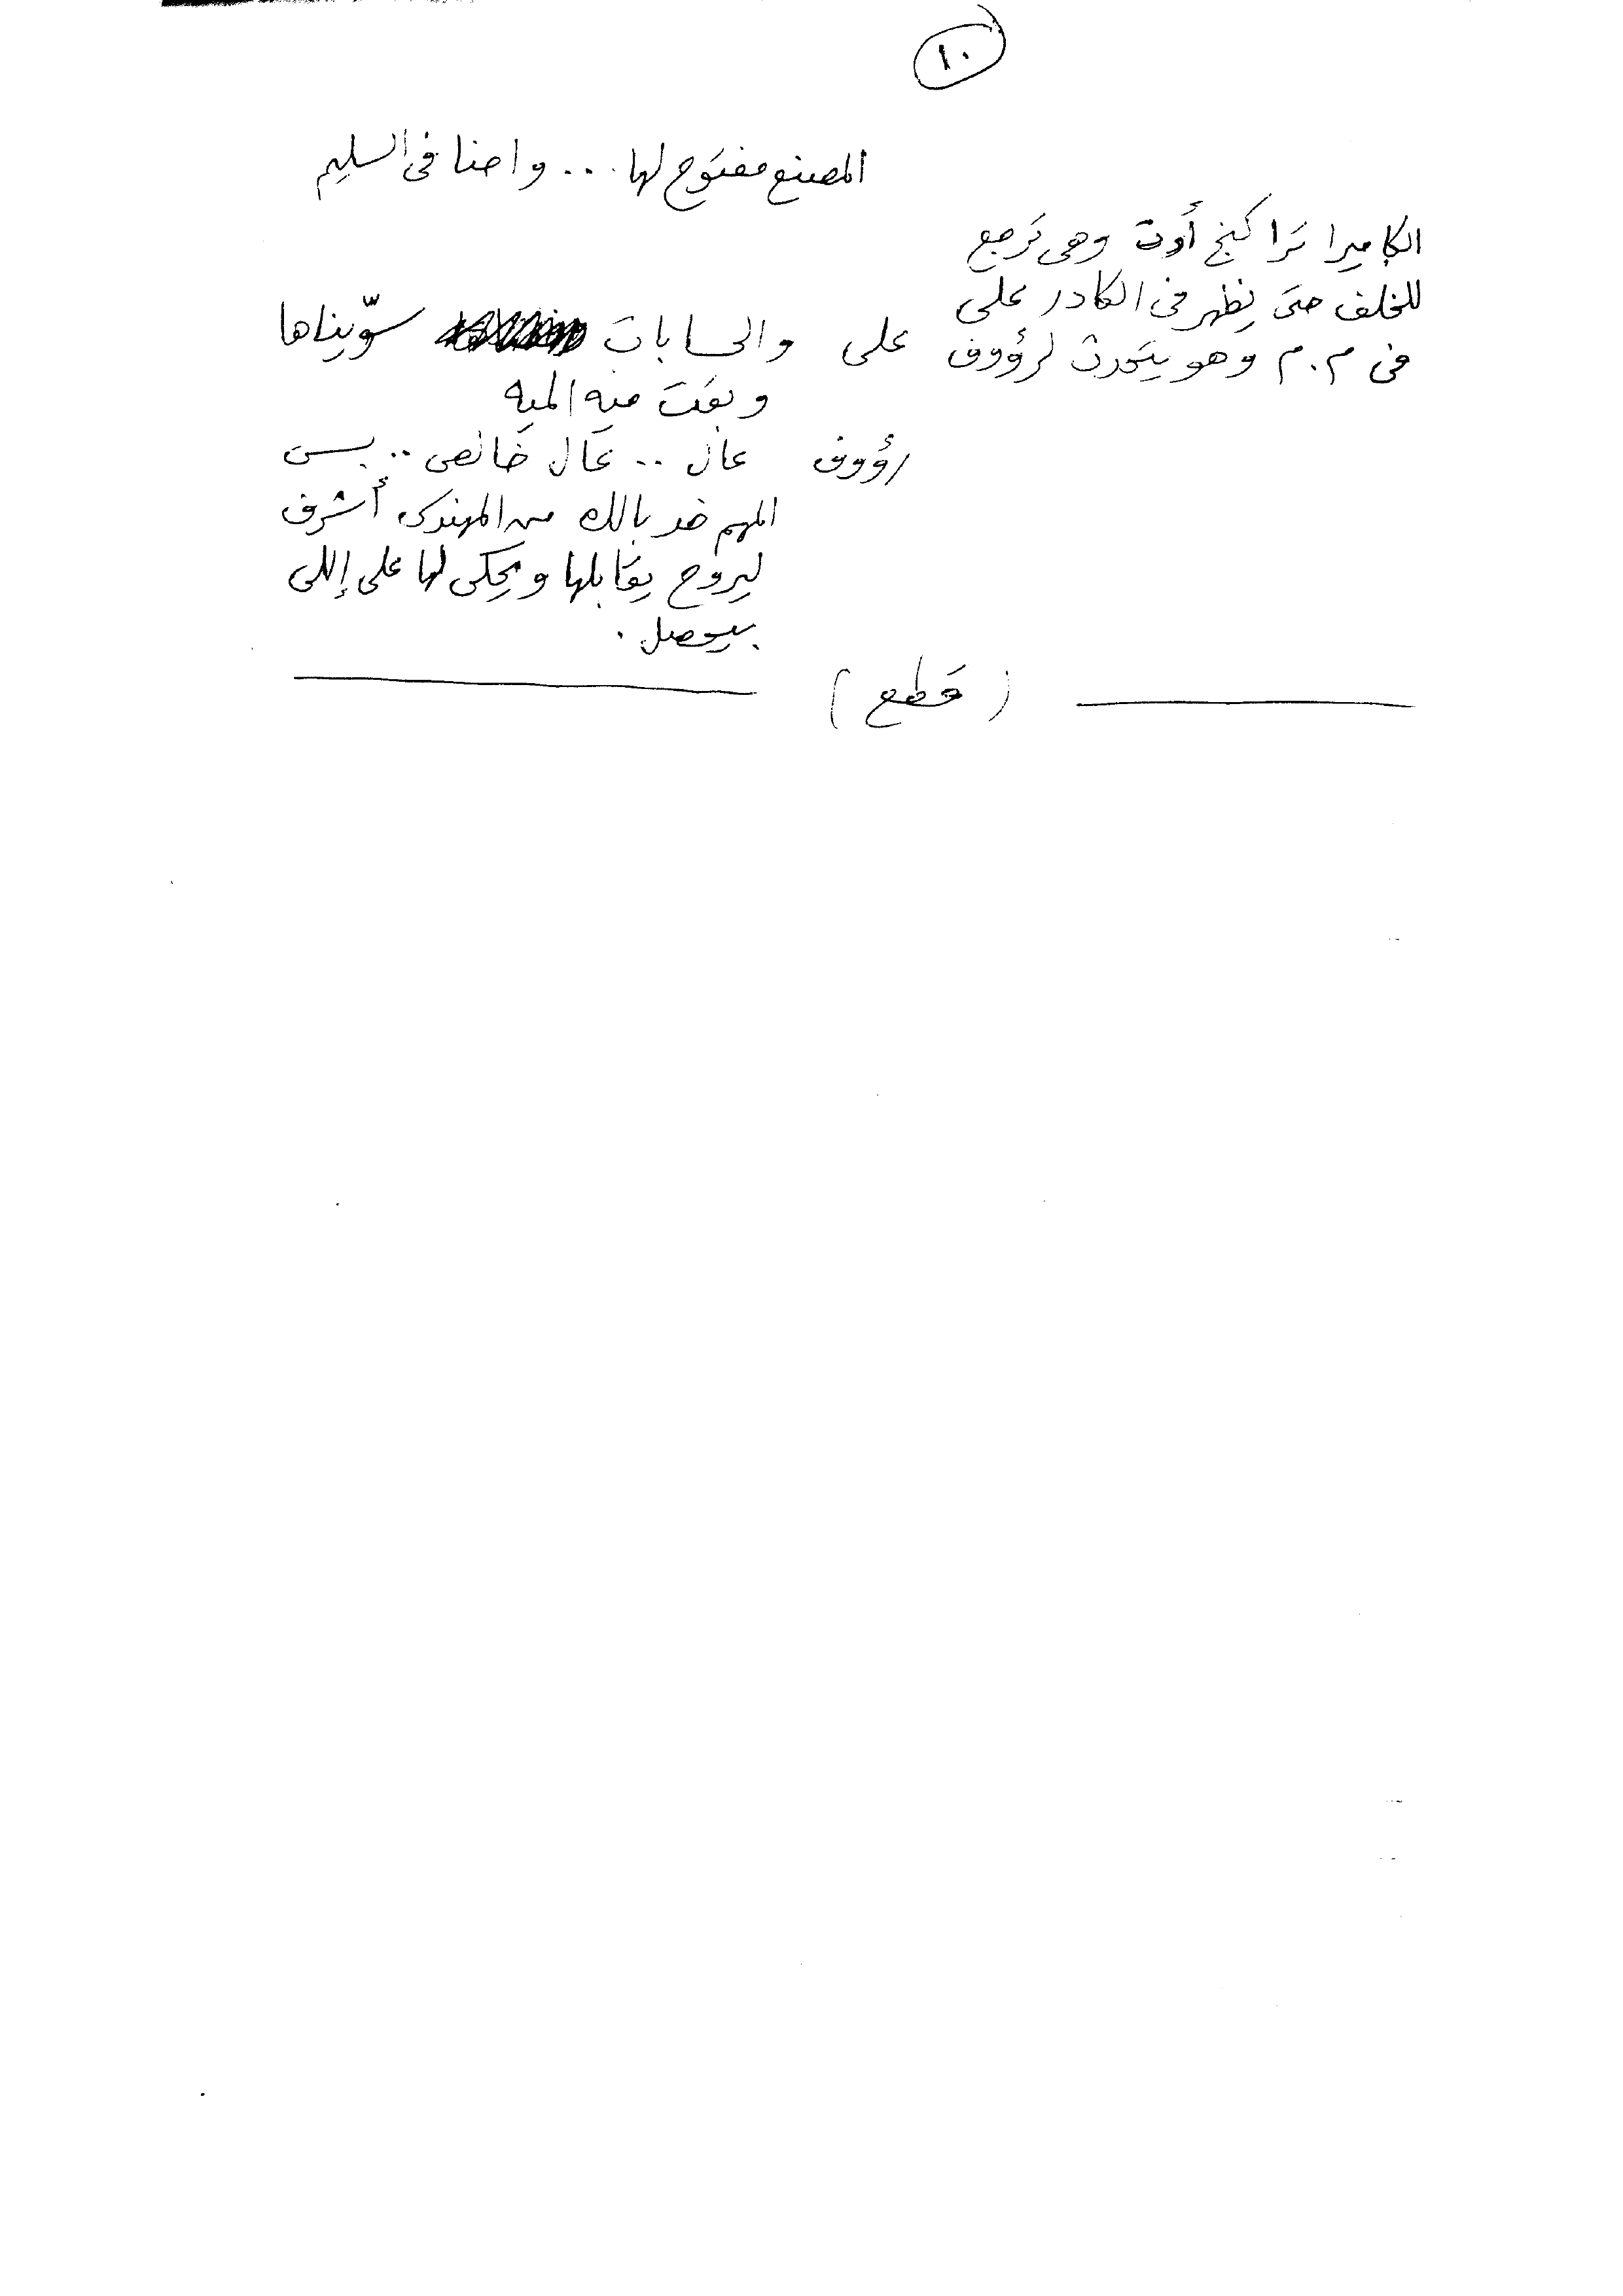 ١٠
المصنع مفتوح لها ... واحنا فى السليم
الكاميرا تراكنج أوت وهى ترجع
للخلف حتى يظهر فى الكادر على
فى م.م وهو يتحدث لرؤوف
على والحسابات سوّيناها
وبقت ميه الميه
رؤوف عال .. عال خالص .. بس
المهم خد بالك من المهندس أشرف
ليروح يقابلها ويحكى لها على إللى
بيحصل .
( قطع )